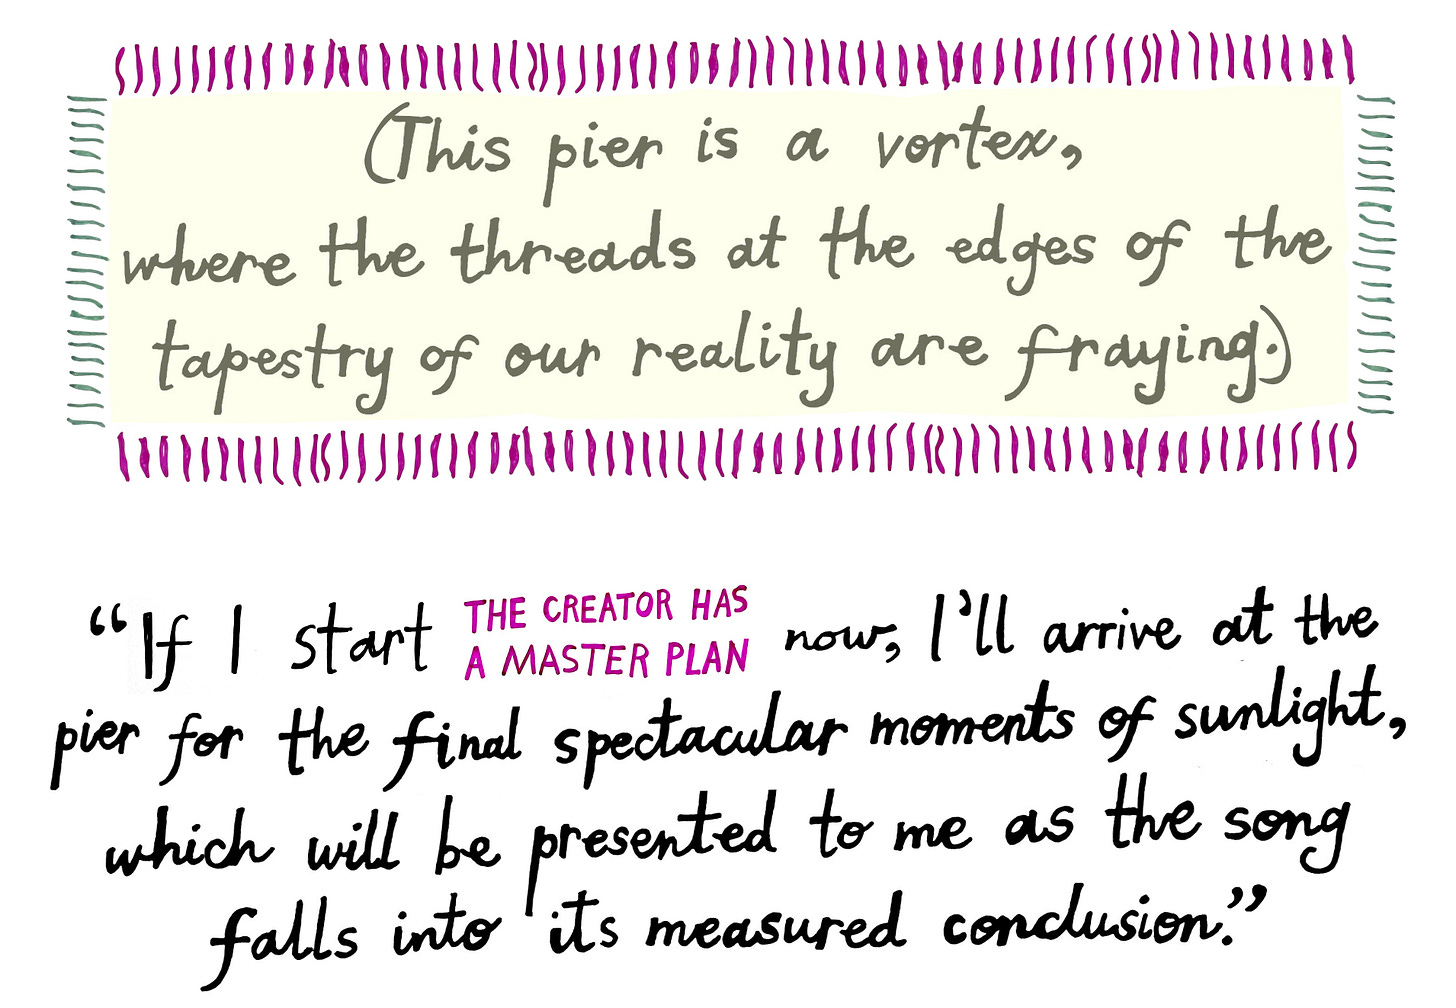 (This pier is a vortex,
where the threads at the edges of the
tapestry of our reality are fraying.)
“If I start THE CREATOR HAS
A MASTER PLAN now, I’ll arrive at the
pier for the final spectacular moments of sunlight,
which will be presented to me as the song
falls into its measured conclusion.”